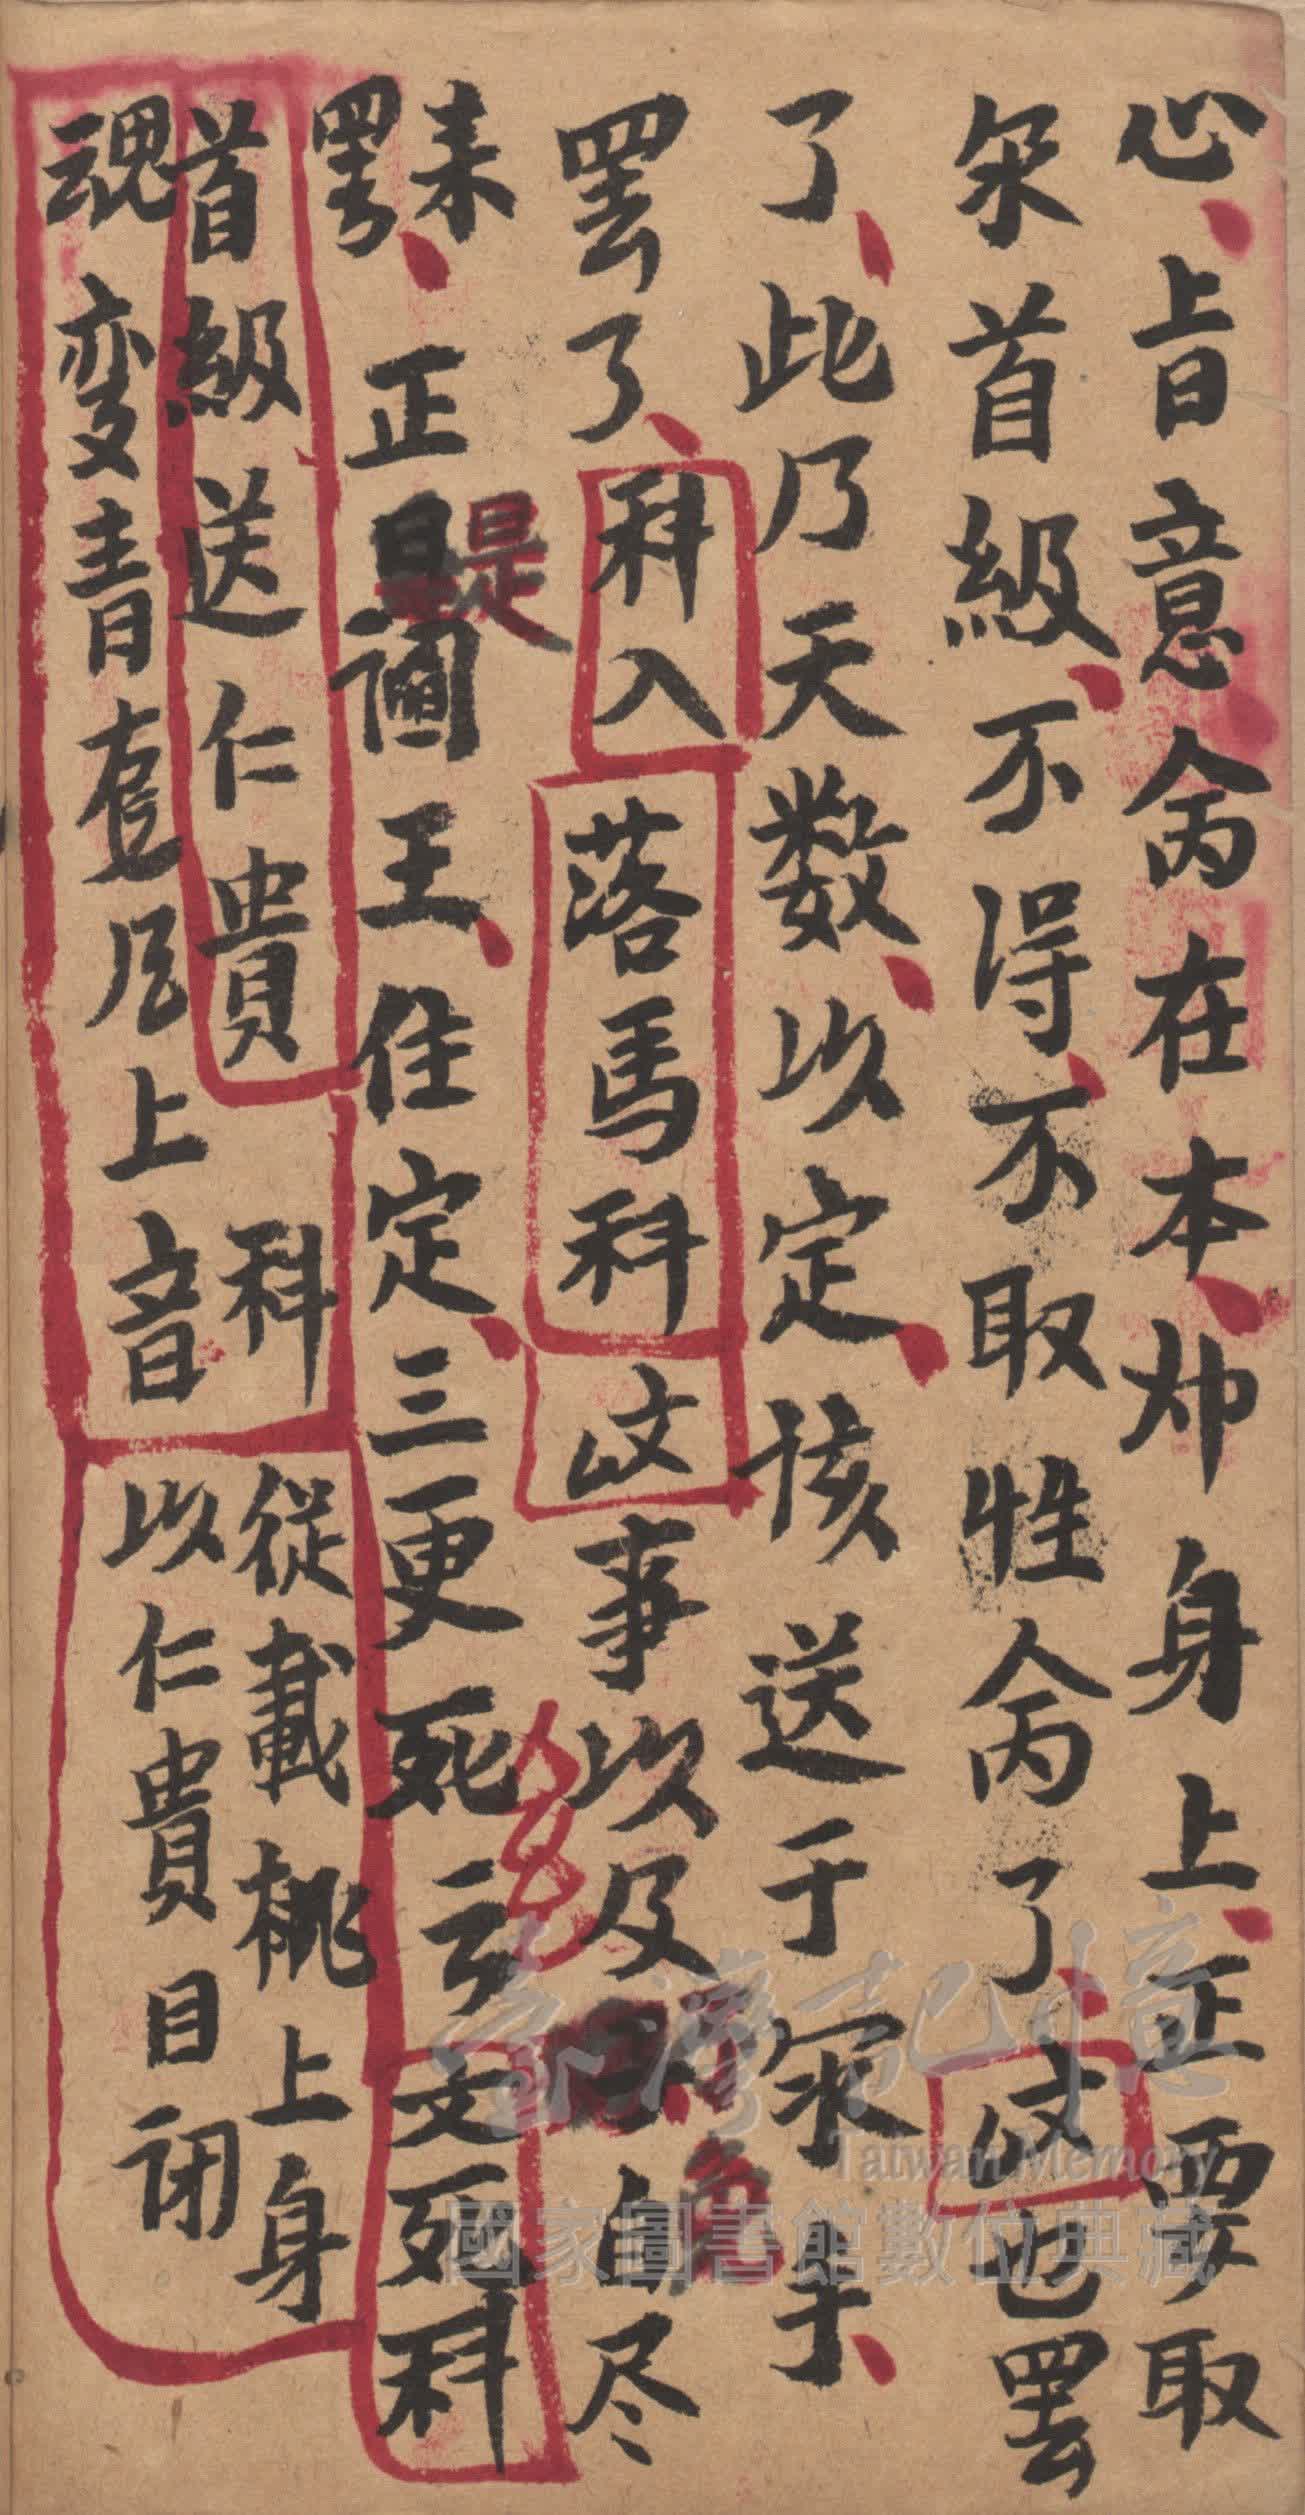 心、旨意禽在本帅身上、正要取
籴首級、不得、不取性禽了、㞨也罢
了、此乃天数、以定、該送于家于、
罢了、科入落馬科㞨事以及子自尽
未罢、正是阎王、住定、三更死云文死科
首級送仁貴科從載桃上身
魂变青龙尾上音以仁貴目闭
臺灣記憶
Taiwan Memory
國家圖書館數位典藏